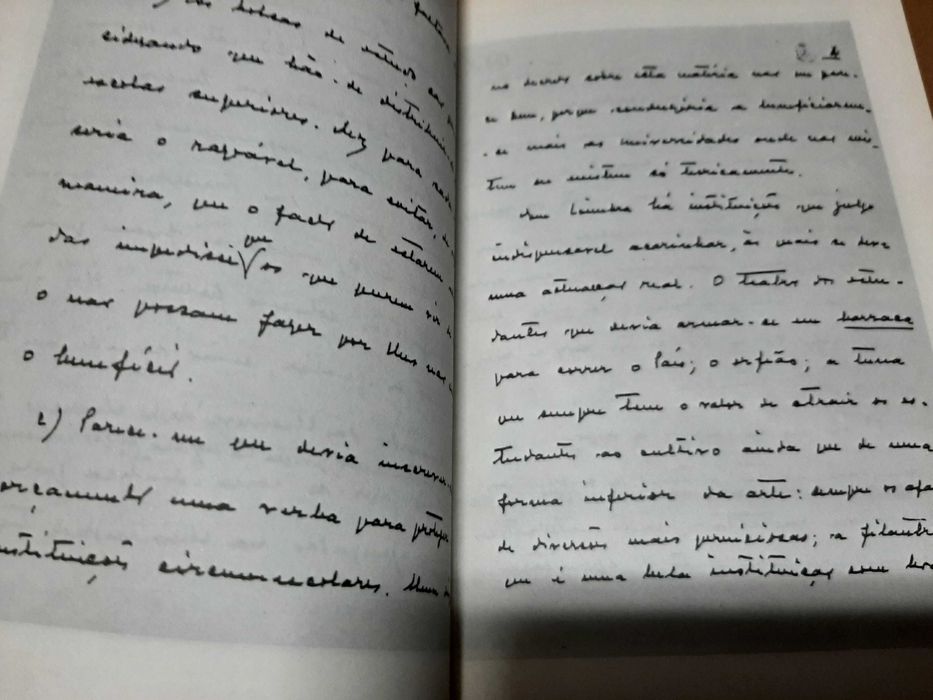 ) as bolsas de estudo
siderando que hão-de distribuir
escolas superiores. Aliz para
seria o razoável, para evitar,
maneira, que o facto de estarem
das impedisse que os que querem
o nas possam fazer por lhes
o benefício.
2) Parece-me que devia inscrever
orçamento uma verba para proteger
instituições circum-escolares.
no decreto sobre esta matéria nas me pare-
ce bem, porque conduziria a beneficiarem-
-se mais as universidades onde nas exis-
tem ou existem só teoricamente.
Em Coimbra há instituições que julgo
indispensavel acarinhar, às mais se deve
uma actuaças real. O teatro dos estu-
dantes que devia armar-se em barraca
para correr o País; o orfeão; a tuna
que sempre tem o valor de atrair os es-
tudantes ao cultivo ainda que de uma
forma inferior da arte: sempre os afas
de diversões mais perniciosas; a filantr
que é uma bela instituiças com